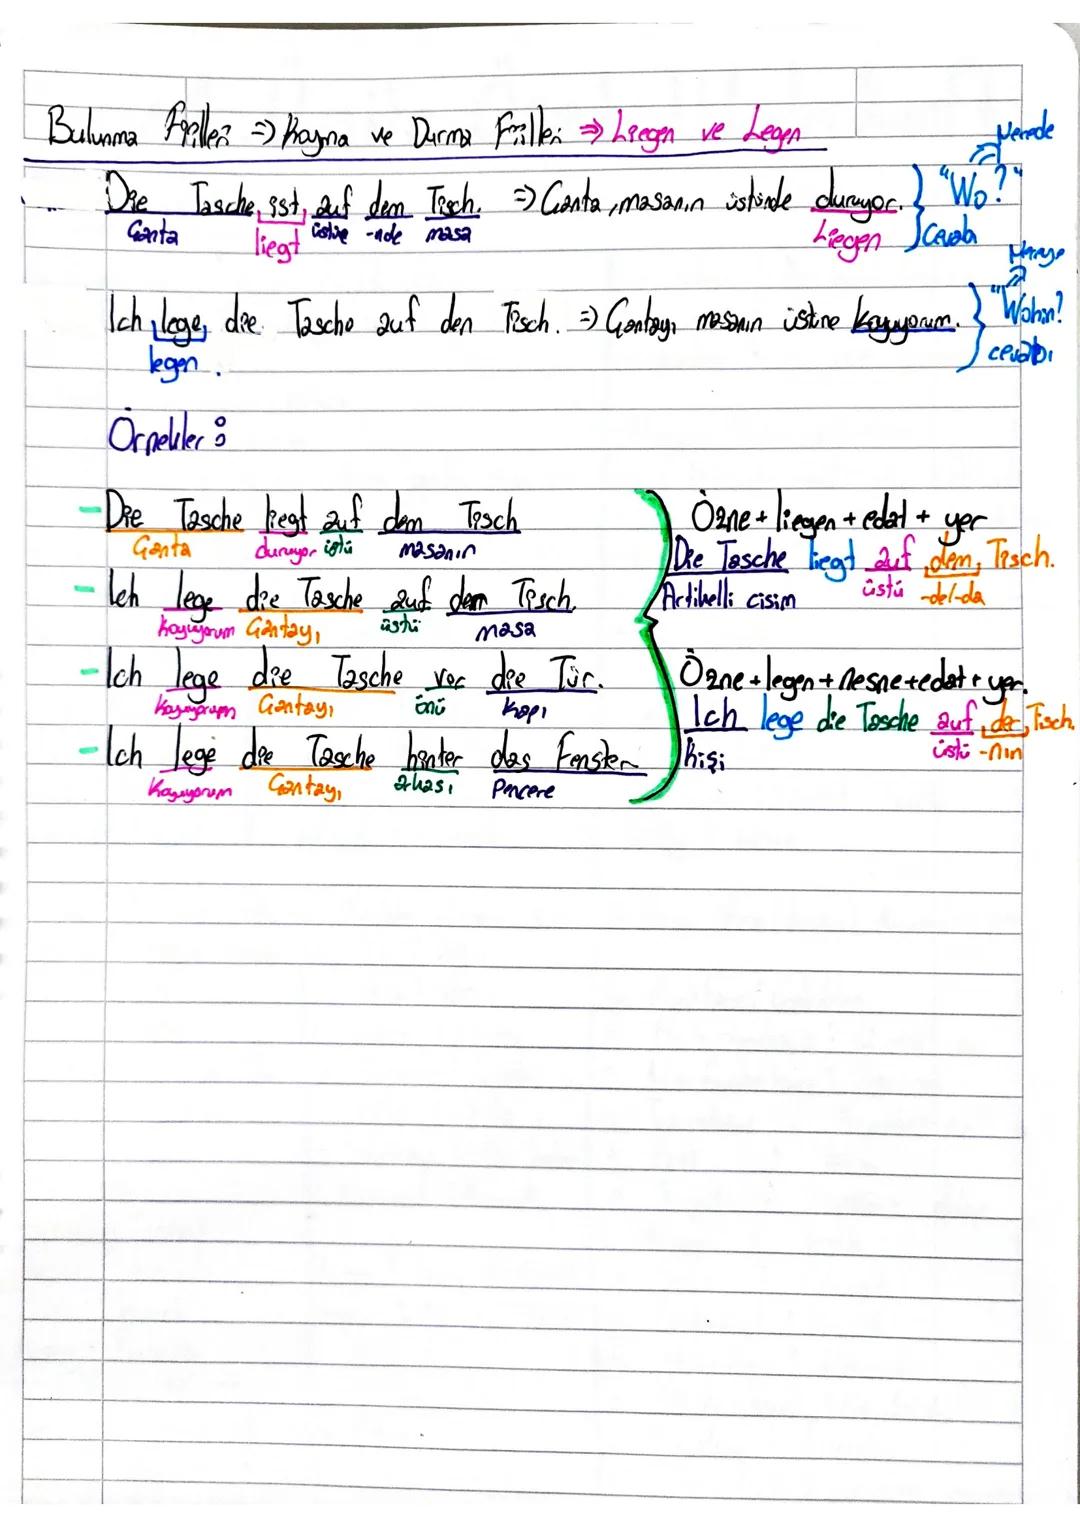 Bulunma Fiilleri => Koyma ve Durma Fiilleri => Liegen ve Legen
Nerede
Die Tasche ist auf dem Tisch. => Çanta, masanın üstünde duruyor. "Wo?"
Çanta liegt üstüne -nde masa Liegen Cevabı
Nereye
Ich lege die Tasche auf den Tisch. => Çantayı masanın üstüne koyuyorum. "Wohin?
legen. cevabı
Örnekler:
- Die Tasche liegt auf dem Tisch
Çanta duruyor üstü masanın
- Ich lege die Tasche auf dem Tisch.
koyuyorum Çantayı üstü masa
- Ich lege die Tasche vor die Tür.
Koyuyorum Çantayı önü kapı
- Ich lege die Tasche hinter das Fenster
Koyuyorum Çantayı arkası Pencere
Özne + liegen + edat + yer
Die Tasche liegt auf dem Tisch.
Artikelli cisim üstü -de/-da
Özne + legen + nesne + edat + yer.
Ich lege die Tasche auf der Tisch.
kişi üstü -nın